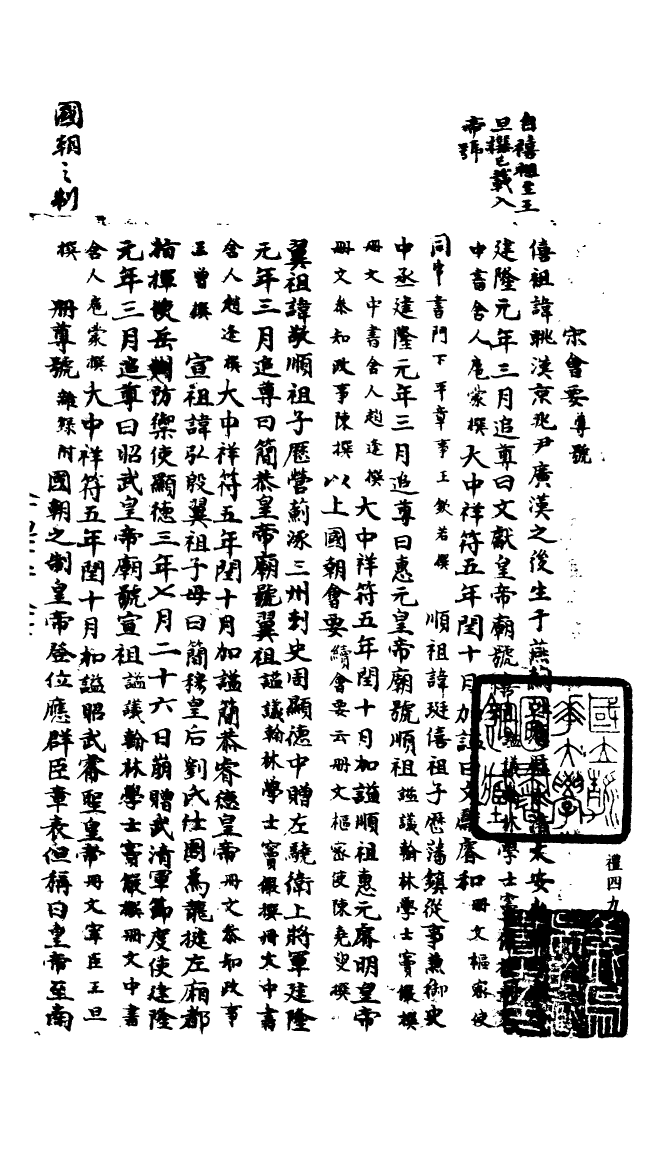 自僖祖至王
旦撰已載入
帝號
宋會要尊號
僖祖諱朓漢京兆尹廣漢之後生于燕
建隆元年三月追尊曰文獻皇帝廟號僖祖謚議翰林學士竇儼撰冊文
中書舍人扈蒙撰大中祥符五年閏十月加謚曰文獻睿和冊文樞密使
同中書門下平章事王欽若撰 順祖諱珽僖祖子歷藩鎮從事兼御史
中丞建隆元年三月追尊曰惠元皇帝廟號順祖謚議翰林學士竇儼撰
冊文中書舍人趙逢撰大中祥符五年閏十月加謚順祖惠元睿明皇帝
冊文參知政事陳撰以上國朝會要續會要云冊文樞密使陳堯叟撰
翼祖諱敬順祖子歷營薊涿三州刺史周顯德中贈左驍衛上將軍建隆
元年三月追尊曰簡恭皇帝廟號翼祖謚議翰林學士竇儼撰冊文中書
舍人趙逢撰大中祥符五年閏十月加謚簡恭睿德皇帝冊文參知政事
王曾撰 宣祖諱弘殷翼祖子母曰簡穆皇后劉氏仕周為龍捷左廂都
指揮使岳州防禦使顯德三年七月二十六日崩贈武清軍節度使建隆
元年三月追尊曰昭武皇帝廟號宣祖謚議翰林學士竇儼撰冊文中書
舍人扈蒙撰大中祥符五年閏十月加謚昭武睿聖皇帝冊文宰臣王旦
撰 冊尊號雜錄附國朝之制皇帝登位應群臣章表但稱曰皇帝至南
國朝之制
國立清華大學圖書館藏
禮四九